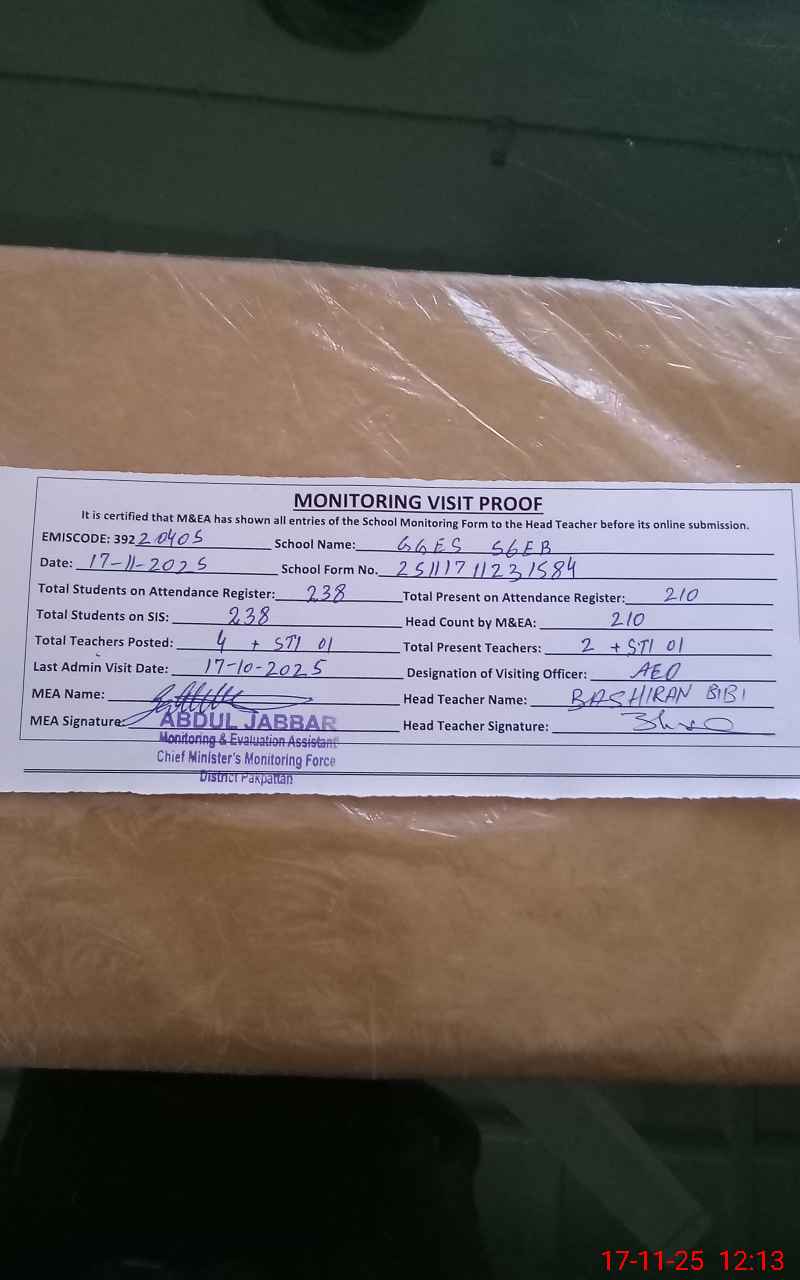 MONITORING VISIT PROOF
It is certified that M&EA has shown all entries of the School Monitoring Form to the Head Teacher before its online submission.
EMISCODE: 39220405 School Name: GGES 56EB
Date: 17-11-2025 School Form No. 2511171123 1584
Total Students on Attendance Register: 238 Total Present on Attendance Register: 210
Total Students on SIS: 238 Head Count by M&EA: 210
Total Teachers Posted: 4 + STI 01 Total Present Teachers: 2 + STI 01
Last Admin Visit Date: 17-10-2025 Designation of Visiting Officer: AEO
MEA Name: Head Teacher Name: BASHIRAN BIBI
MEA Signature: ABDUL JABBAR Head Teacher Signature:
Monitoring & Evaluation Assistant
Chief Minister's Monitoring Force
District Pakpattan
17-11-25 12:13